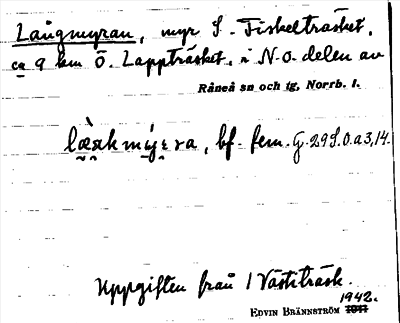 Långmyran, myr S. Fiskelträsket,
ca 9 km Ö. Lappträsket, i N.O. delen av
Råneå sn och tg, Norrb. l.
bf. fem. G. 29 S.O. a 3,14.
Uppgiften från 1 Västiträsk.
1942.
EDVIN BRÄNNSTRÖM 1941